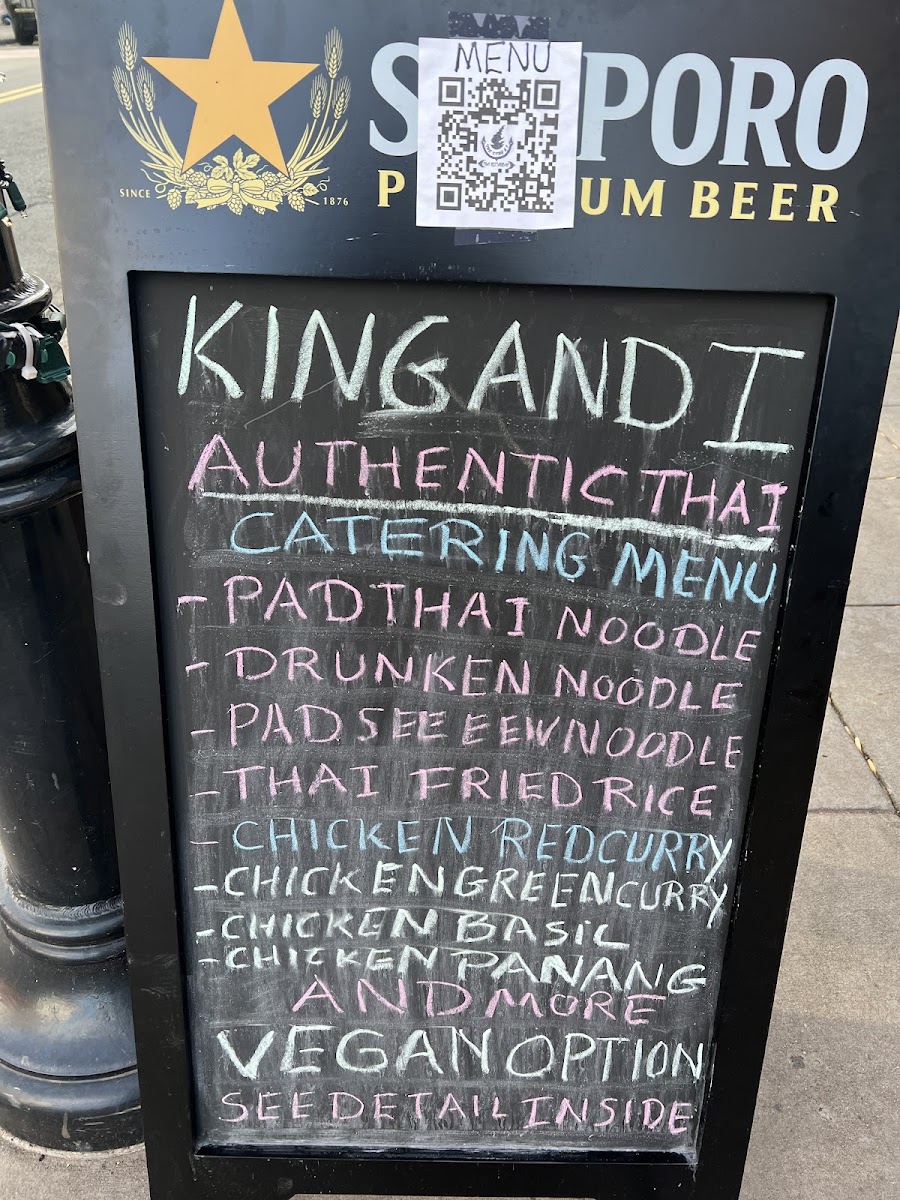 MENU
S PORO
P UM BEER
SINCE 1876
KING AND I
AUTHENTIC THAI
CATERING MENU
- PAD THAI NOODLE
- DRUNKEN NOODLE
- PAD SEE EEW NOODLE
- THAI FRIED RICE
- CHICKEN RED CURRY
- CHICKEN GREEN CURRY
- CHICKEN BASIL
- CHICKEN PANANG
AND MORE
VEGAN OPTION
SEE DETAIL INSIDE